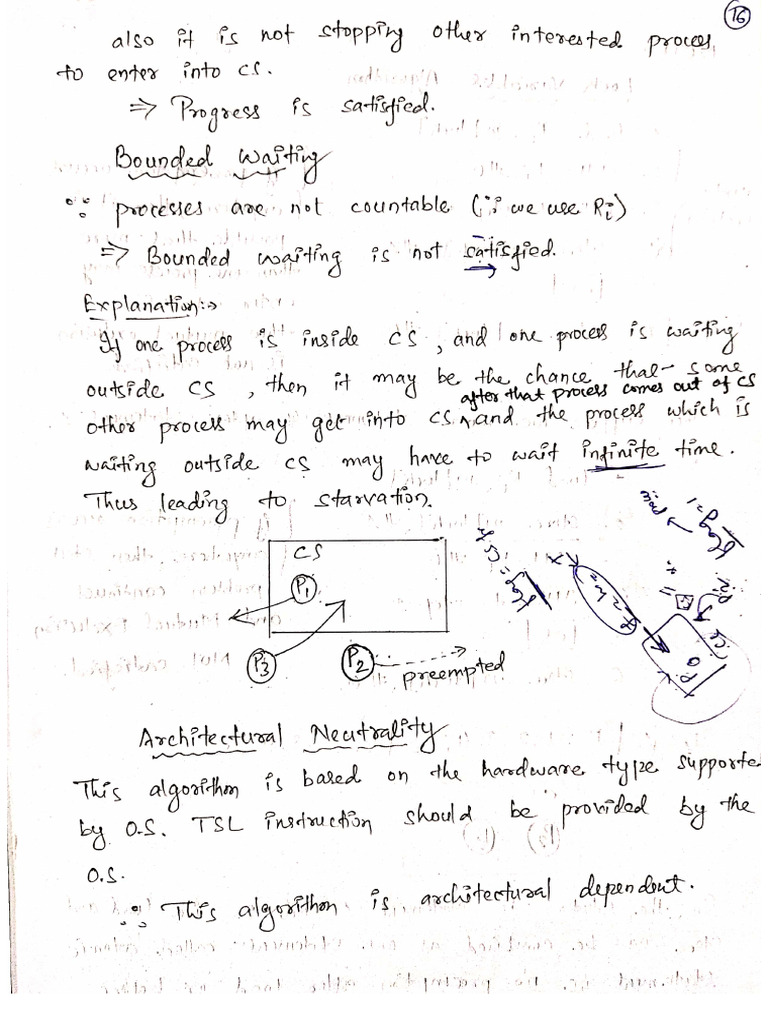 16
also it is not stopping other interested process
to enter into CS.
⇒ Progress is satisfied.
Bounded Waiting
∵ processes are not countable (∵ we use Ri)
⇒ Bounded waiting is not satisfied.
Explanation:→
If one process is inside CS, and one process is waiting
outside CS, then it may be the chance that some
after that process comes out of CS
other process may get into CS ∧ and the process which is
waiting outside CS may have to wait infinite time.
Thus leading to starvation.
CS
P1
P3
P2
preempted
flag=1
flag=
CS
Architectural Neutrality
This algorithm is based on the hardware type supporte
by O.S. TSL instruction should be provided by the
O.S.
∴ This algorithm is architectural dependent.